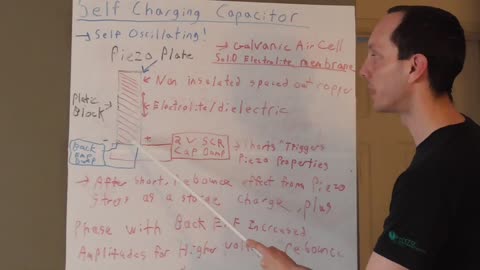 Self Charging Capacitor
→ Self Oscillating!
→ Galvanic Air Cell
Solid Electrolite membrane
Piezo Plate
Non insulated spaced out copper
Plate Block
Electrolite/dielectric
- +
Back
2 V SCR
Cap Dump
→ Shorts "Triggers
Piezo Properties
→ After short, rebounce effect from Piezo
Stress as a storage, charge, plus
Phase with Back E.M.F Increased
Amplitudes for Higher voltage rebounce